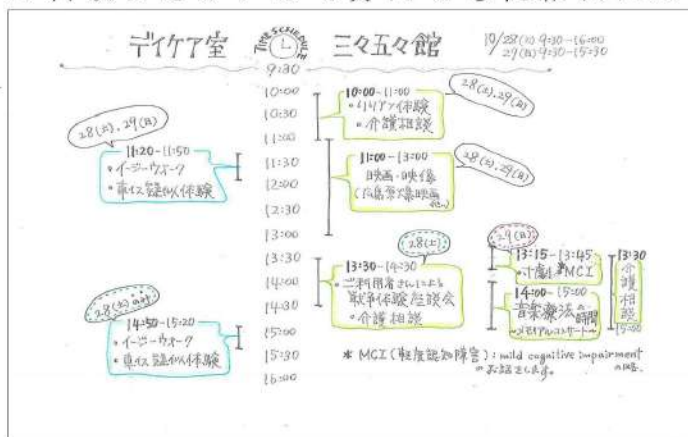 デイケア室
TIME SCHEDULE
三々五々館
10/28(土) 9:30-16:00
29(日) 9:30-15:30
9:30
10:00
10:30
11:00
11:30
12:00
12:30
13:00
13:30
14:00
14:30
15:00
15:30
16:00
28(土), 29(日)
11:20-11:50
・イージーウォーク
・車イス疑似体験
28(土)
14:50-15:20
・イージーウォーク
・車イス疑似体験
28(土), 29(日)
10:00-11:00
体験
・介護相談
28(土), 29(日)
11:00-13:00
映画・映像
(広島原爆映画
28(土)
13:30-14:30
・ご利用者さんによる
戦争体験座談会
・介護相談
29(日)
13:15-13:45
MCI
14:00-15:00
音楽療法の時間
~メモリアルコンサート~
13:30
介護相談
15:00
* MCI(軽度認知障害): mild cognitive impairment
の略。
のお話をします。